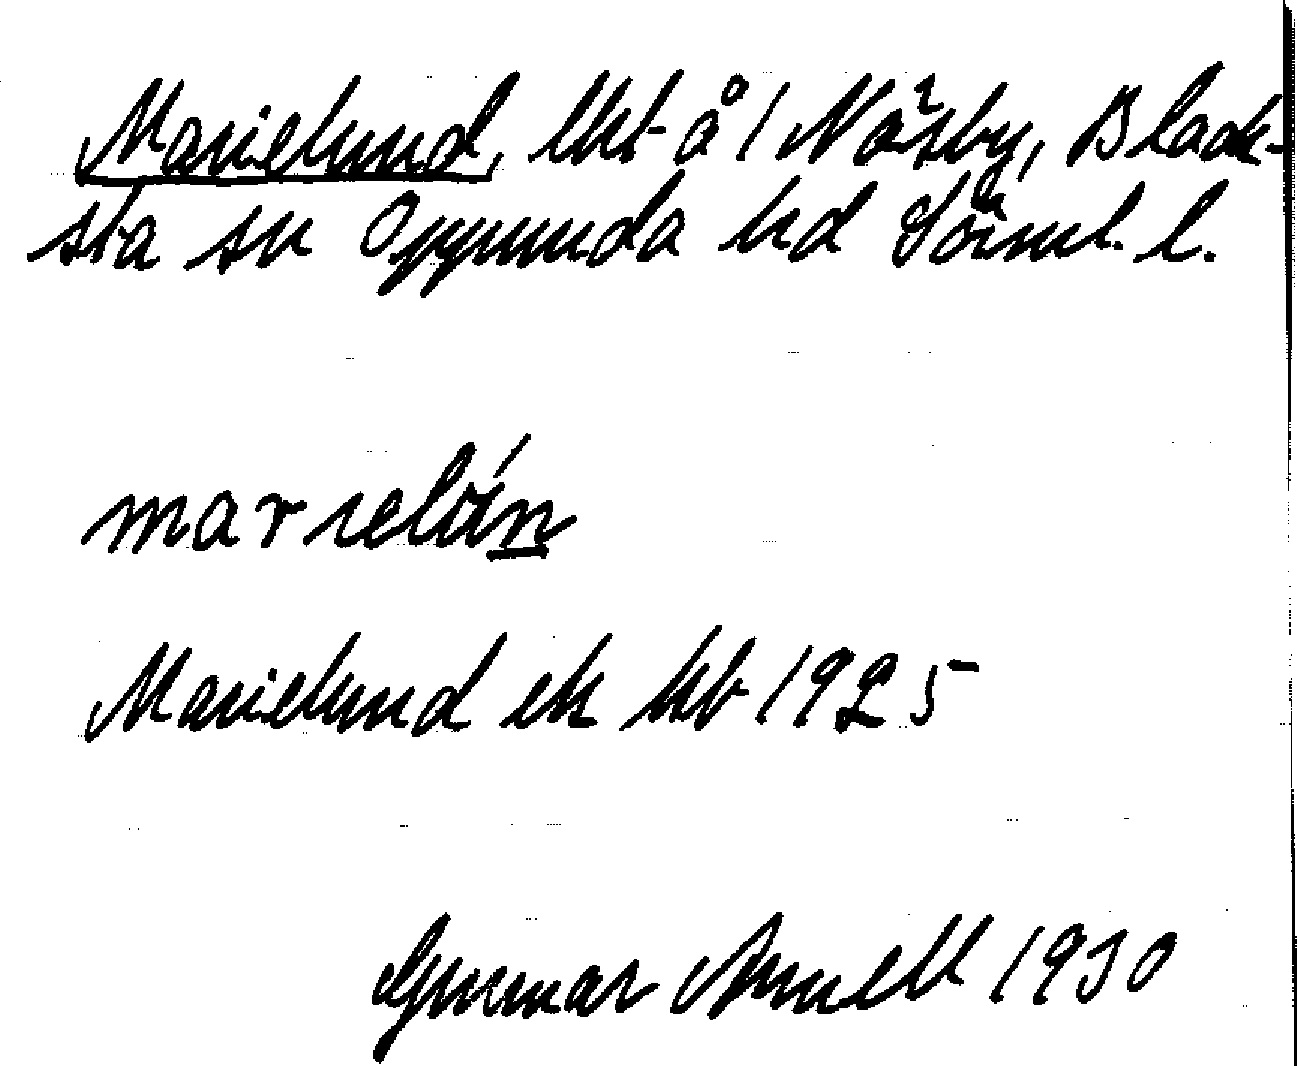 Marielund, lht å 1 Näsby, Black-
sta sn Oppunda hd Sörml. l.
marielún
Marielund ek kb 1925
Gunnar Arnell 1930